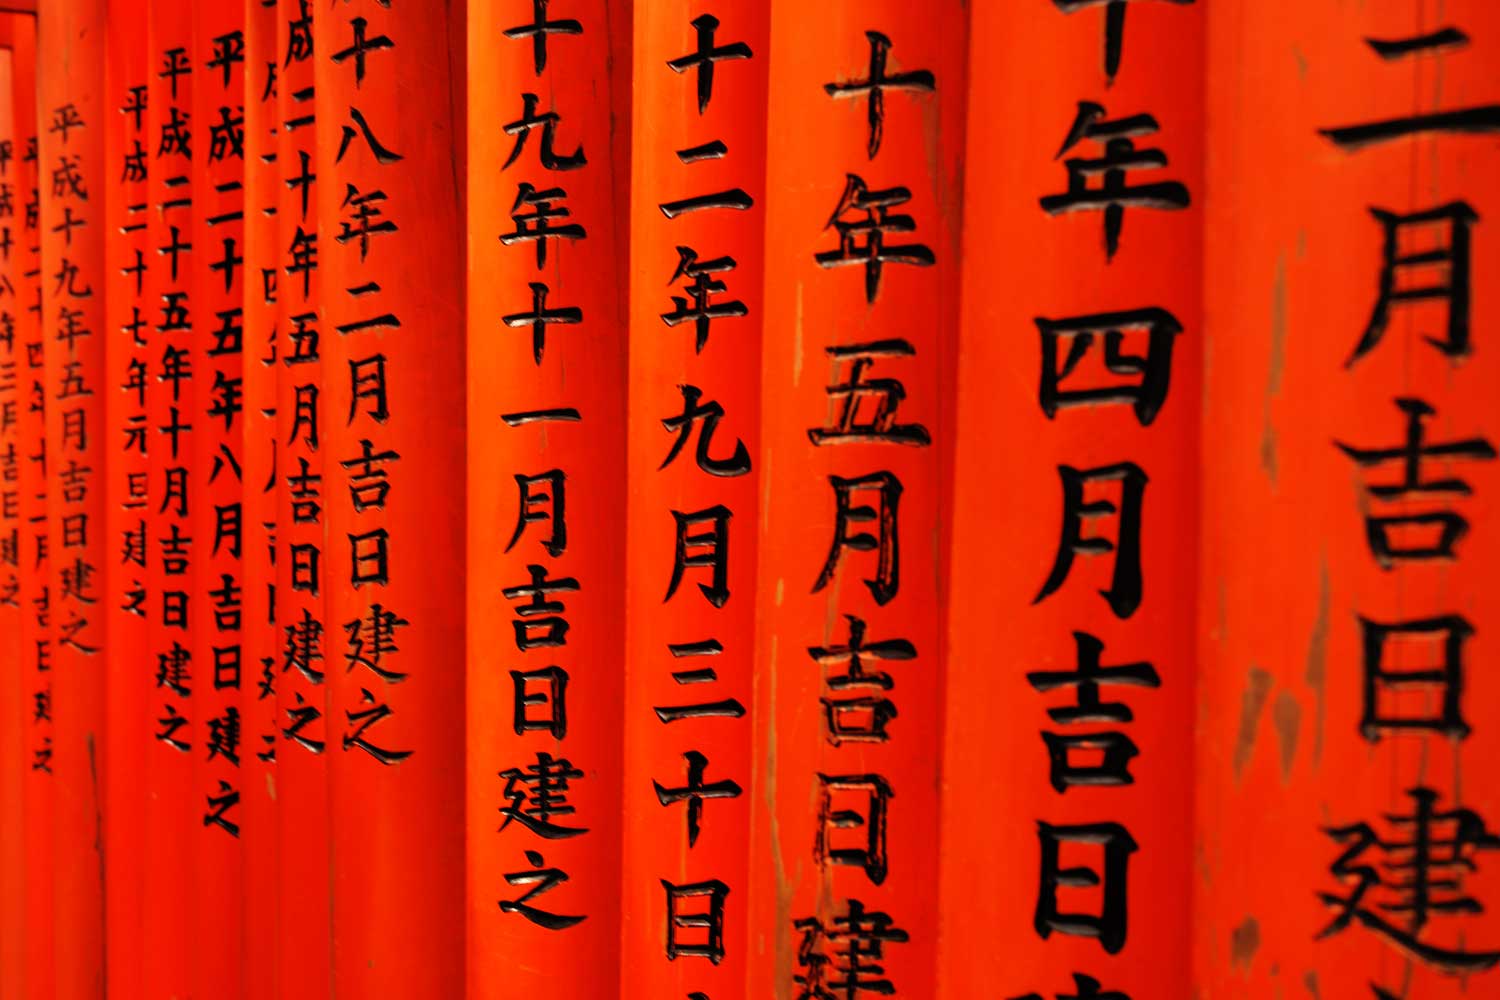 二月吉日建
年四月吉日
十年五月吉日建
十二年九月三十日
十九年十一月吉日建之
十八年二月吉日建之
成二十年五月吉日建之
平成二十五年八月吉日建之
平成二十五年十月吉日建之
平成二十七年元旦建之
平成十九年五月吉日建之
平成二十四年十二月吉日建之